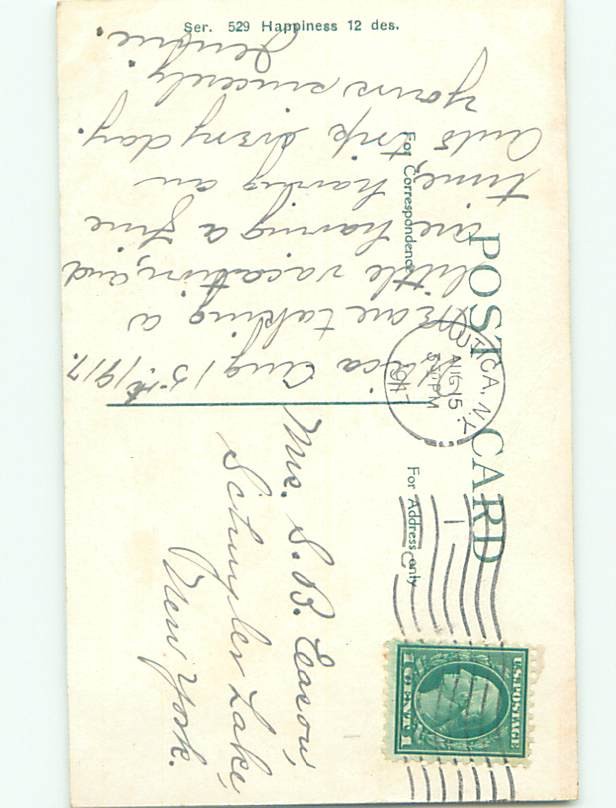 Ser. 529 Happiness 12 des.
POST CARD
For Correspondence
For Address only
UTICA, N.Y.
AUG 15
5 PM
1917
U.S. POSTAGE
1 CENT 1
Utica Aug 15th 1917.
We are taking a
little vacation, and
are having a fine
time, having an
auto trip every day.
Yours sincerely
Jennie.
Mrs. S. B. Eason,
Schuyler Lake,
New York.